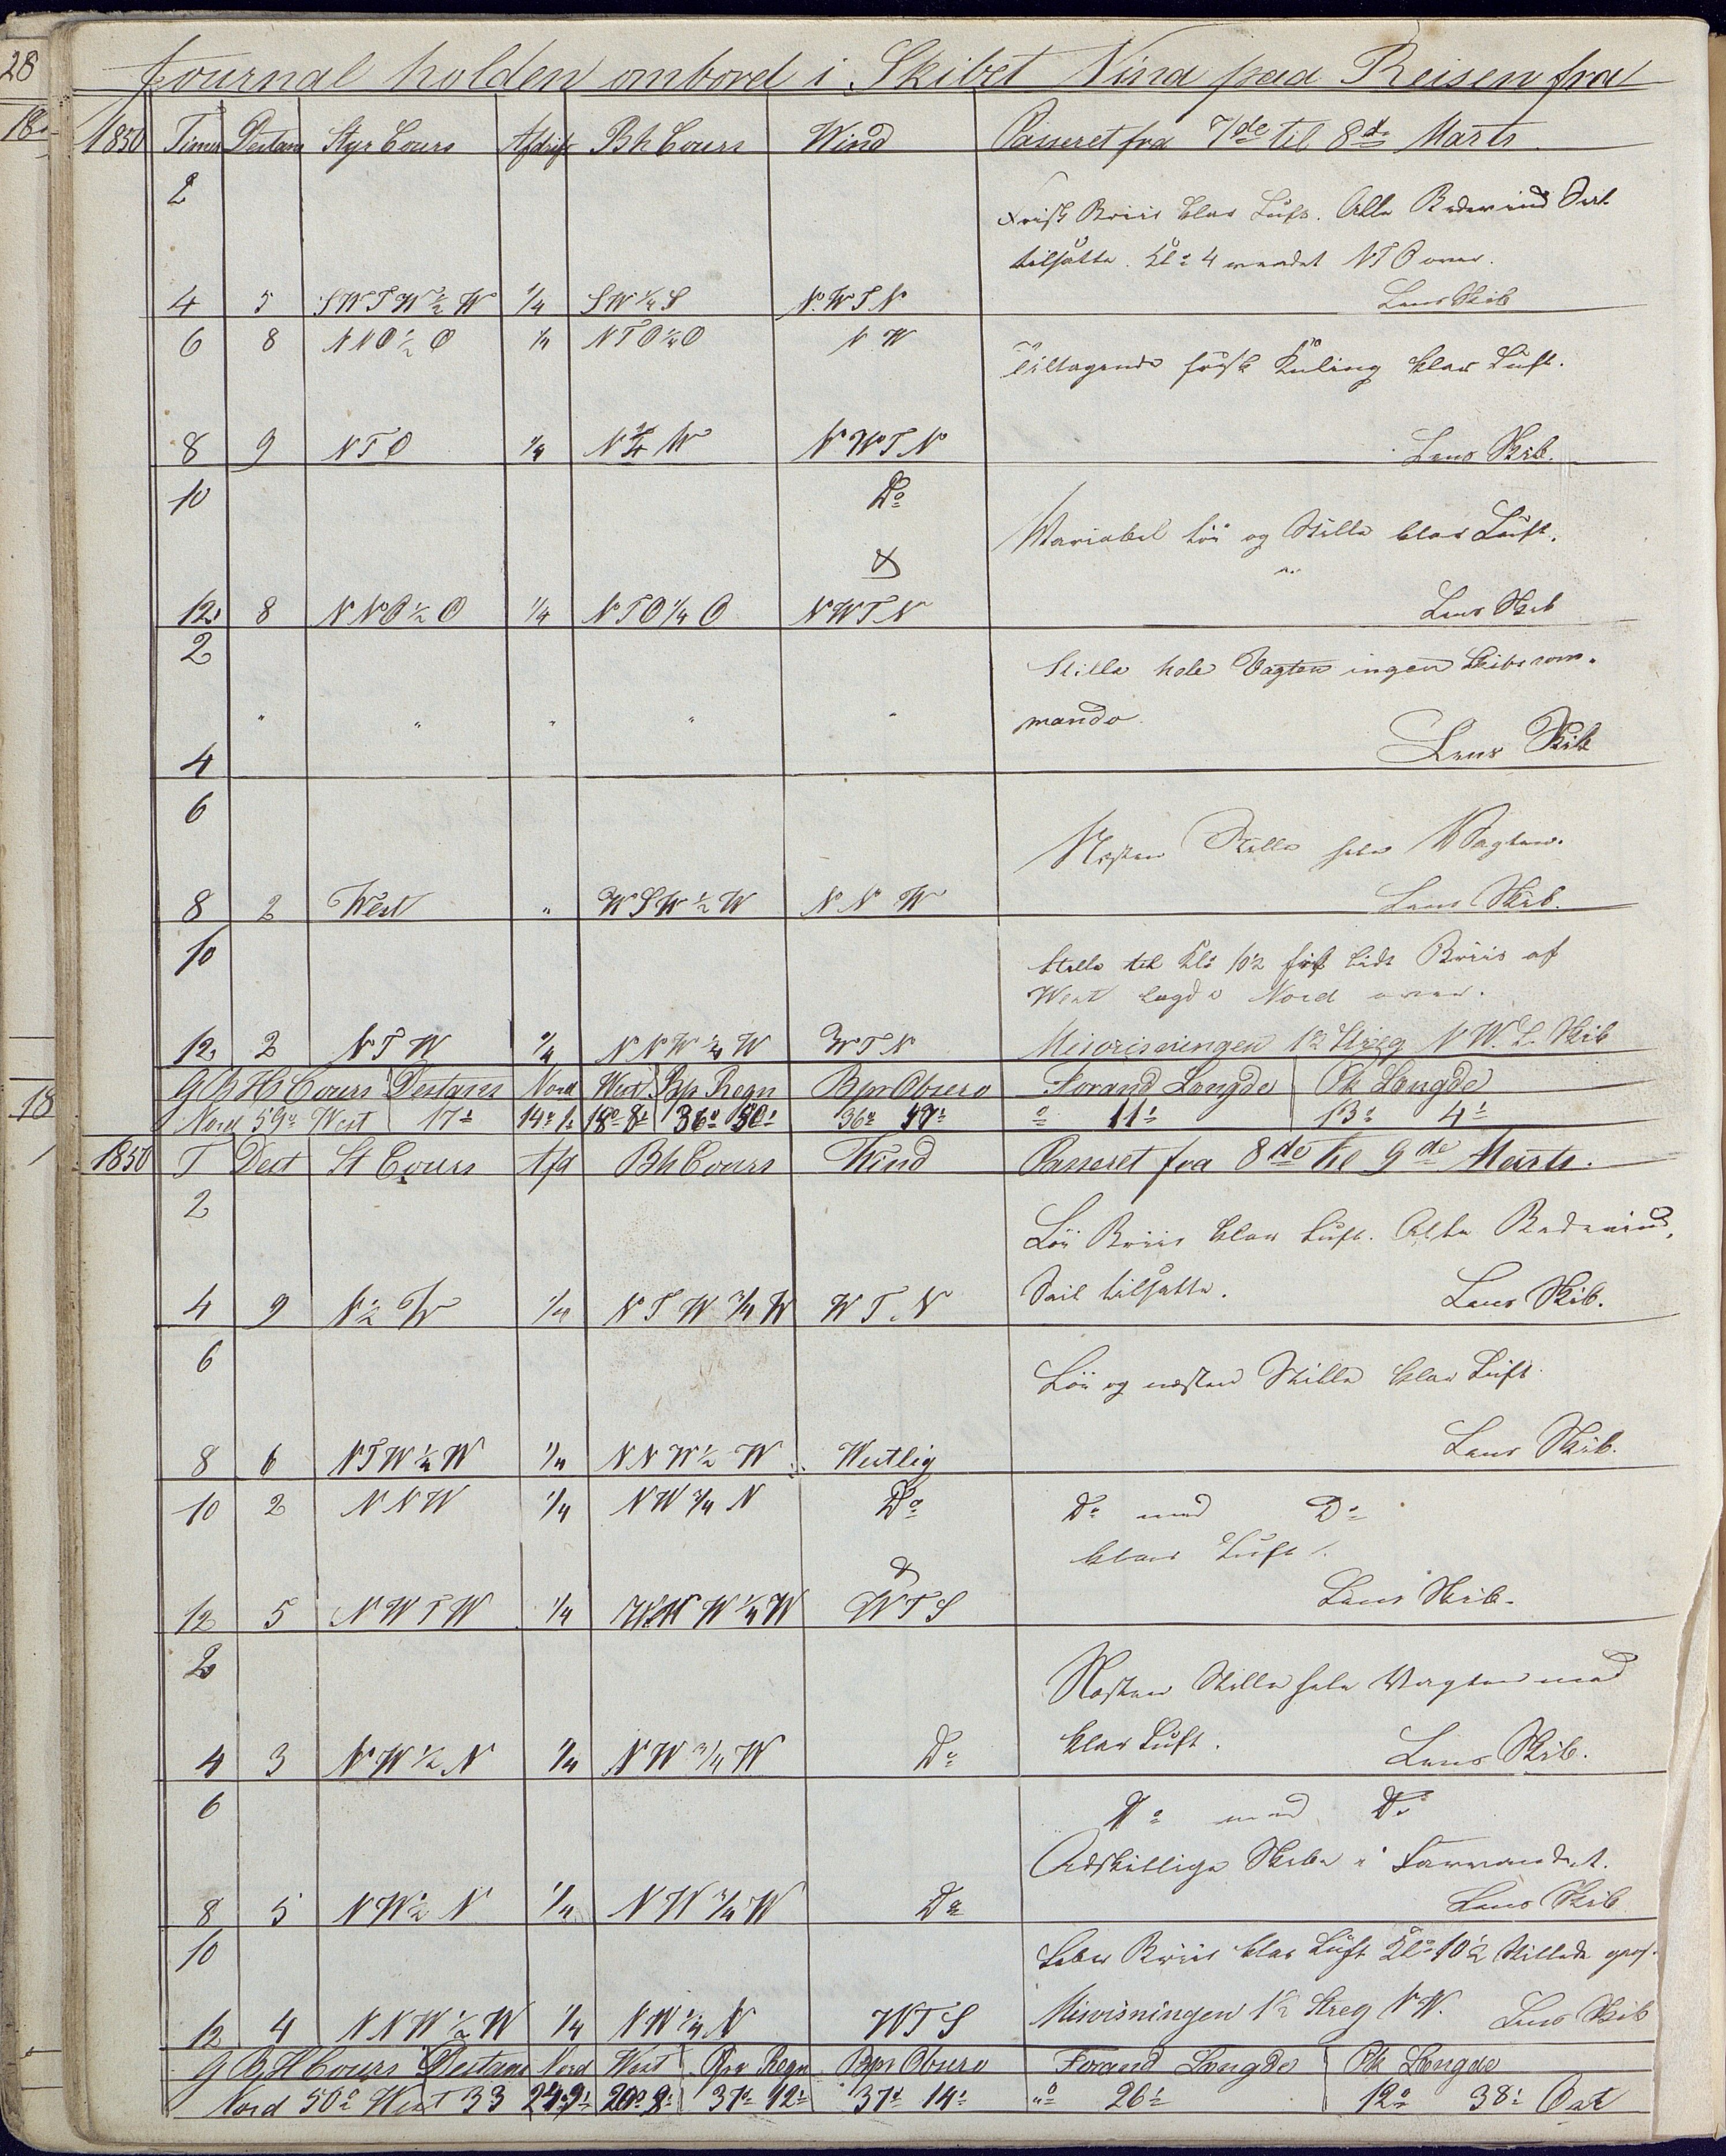 28
Journal holden ombord i Skibet Nina paa Reisen fra
18
1850 Timer Destans Styr Cours Afdrift Bh Cours Wind Passeret fra 7de til 8de Marts
2
Frisk Briis klar Luft. Alle Bidevind Seil
tilsatte. Kl: 4 vendet NTO over.
4 5 SWTW½W ¼ SW¼S N.WTN Lens Skib
6 8 NNO½O ¼ NTO¼O NW
Tiltagende frisk Kuling klar Luft.
8 9 NTO ¼ N¼W NWTN Lens Skib.
10 Do
Variabel Löi og Stille klar Luft.
&
12 8 NNO½O ¼ NTO¼O NWTN Lens Skib
2
Stille hele Vagten ingen Skibscom-
" " " " "
mando.
4 Lens Skib
6
Næsten Stille hele Vagten.
8 2 West " WSW½W NNW Lens Skib.
10
Stille til Kl: 10½ fik lidt Briis af
West lagde Nord over.
12 2 NTW ¼ NNW¼W WTN Misvisningen 1½ Streg NW. L. Skib
G B H Cours Destans Nord West Bpr Regn Bpr Observ Forand Længde Pk Længde
18
Nord 59° West 17: 36° 50: 36° 11: 13: 4:
1850 T Dest St Cours Afd Bh Cours Wind Passeret fra 8de til 9de Marts.
2
Löi Briis klar Luft. Alle Bidevind,
Seil tilsatte.
4 9 N½W ¼ NTW¾W WT.N Lens Skib.
6
Löi og næsten Stille klar Luft.
8 6 NTW¼W ¼ NNW½W Westlig Lens Skib.
10 2 NNW ¼ NW¾N Do Do med Do
klar Luft.
&
12 5 NWTW ¼ WTS Lens Skib.
2
Næsten Stille hele Vagten med
klar Luft.
4 3 NW½N ¼ NW¼W Do Lens Skib.
6 Do med Do
Adskillige Skibe i Farvandet.
8 5 NW½N ¼ NW¼W Do Lens Skib
10
Laber Briis klar Luft Kl: 10½ Stillede
12 4 NNW½W ¼ NW¼N WTS Misvisningen 1½ Streg NW. Lens Skib
G B H Cours Destans Nord West Bpr Regn Bpr Observ Forand Længde Pk Længde
Nord 50° West 33 37° 12: 37° 14: "° 26: 12° 38: Ost